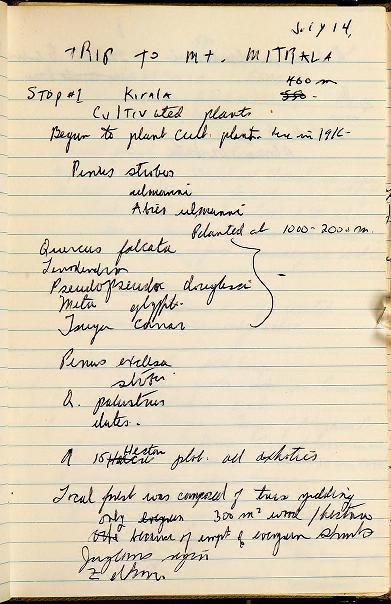 July 14,
TRIP TO MT. MITRALA
460 m
STOP #1 Kirala 550 -
Cultivated plants
Began to plant cult. plants here in 1916-
Pinus strobus
ulmanni
Abies ulmanni
Planted at 1000-2000 m.
Quercus falcata
Liriodendron
Pseudopseudor douglasi
Meta glypt.
Tsuga canar
Pinus excelsa
strobi
Q. palustris
dates.
A 16 Hectar plot. all exhotics
Local forest was composed of trees yielding
only evergreen 300 m² wood / hectare
because of empt of evergreen shrubs
Juglans regia
Z elkova